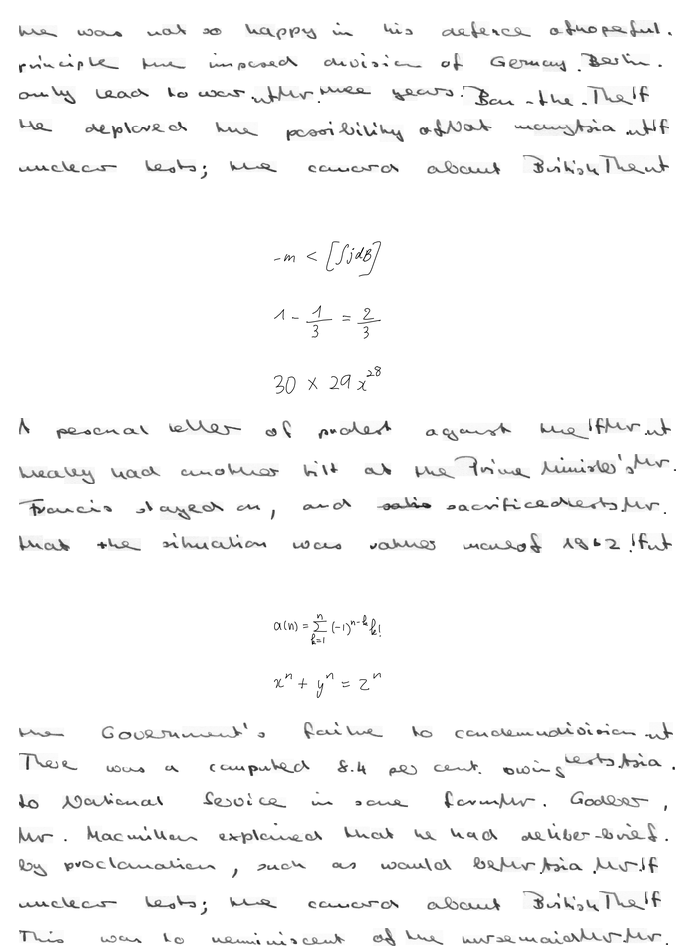 He was not so happy in his defence of hopeful.
principle the imposed division of Germany. Berlin.
only lead to war. ut Mr. three years. Ban - the. The If
He deplored the possibility of Not many Asia. ut If
nuclear tests; the canard about British The ut
-m < [∫jdB]
1 - 1/3 = 2/3
30 × 29x^28
A personal letter of protest against the If Mr. ut
Healey had another tilt at the Prime Minister's Mr.
Francis stayed on, and sacrificed tests. Mr.
that the situation was rather of 1962! If ut
a(n) = ∑_{k=1}^{n} (-1)^{n-k} k!
x^n + y^n = z^n
the Government's failure to condemn division. ut
There was a computed 8.4 per cent. owing tests. Asia.
to National Service in some form Mr. Godber,
Mr. Macmillan explained that he had deliber- brief.
by proclamation, such as would be Mr. Asia. Mr. If
nuclear tests; the canard about British The If
This was to reminiscent of the nursemaid Mr. Mr.